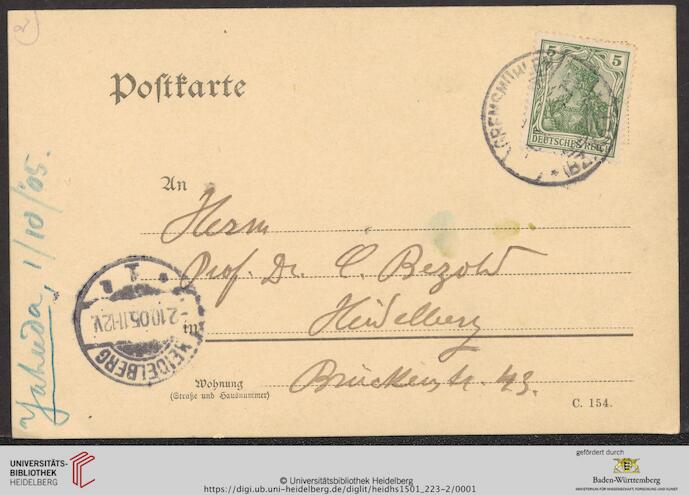 2
Postkarte
5 5
DEUTSCHES REICH
GREMSMÜHLEN
(BZ.
An
Herrn
Prof. Dr. C. Bezold
in Heidelberg
Wohnung Brückenstr. 43.
(Straße und Hausnummer)
C. 154.
HEIDELBERG
-2.10.05.11-12V.
1.
Yahuda, 1/10/'05.
UNIVERSITÄTS-
BIBLIOTHEK
HEIDELBERG
© Universitätsbibliothek Heidelberg
https://digi.ub.uni-heidelberg.de/diglit/heidhs1501_223-2/0001
gefördert durch
Baden-Württemberg
MINISTERIUM FÜR WISSENSCHAFT, FORSCHUNG UND KUNST